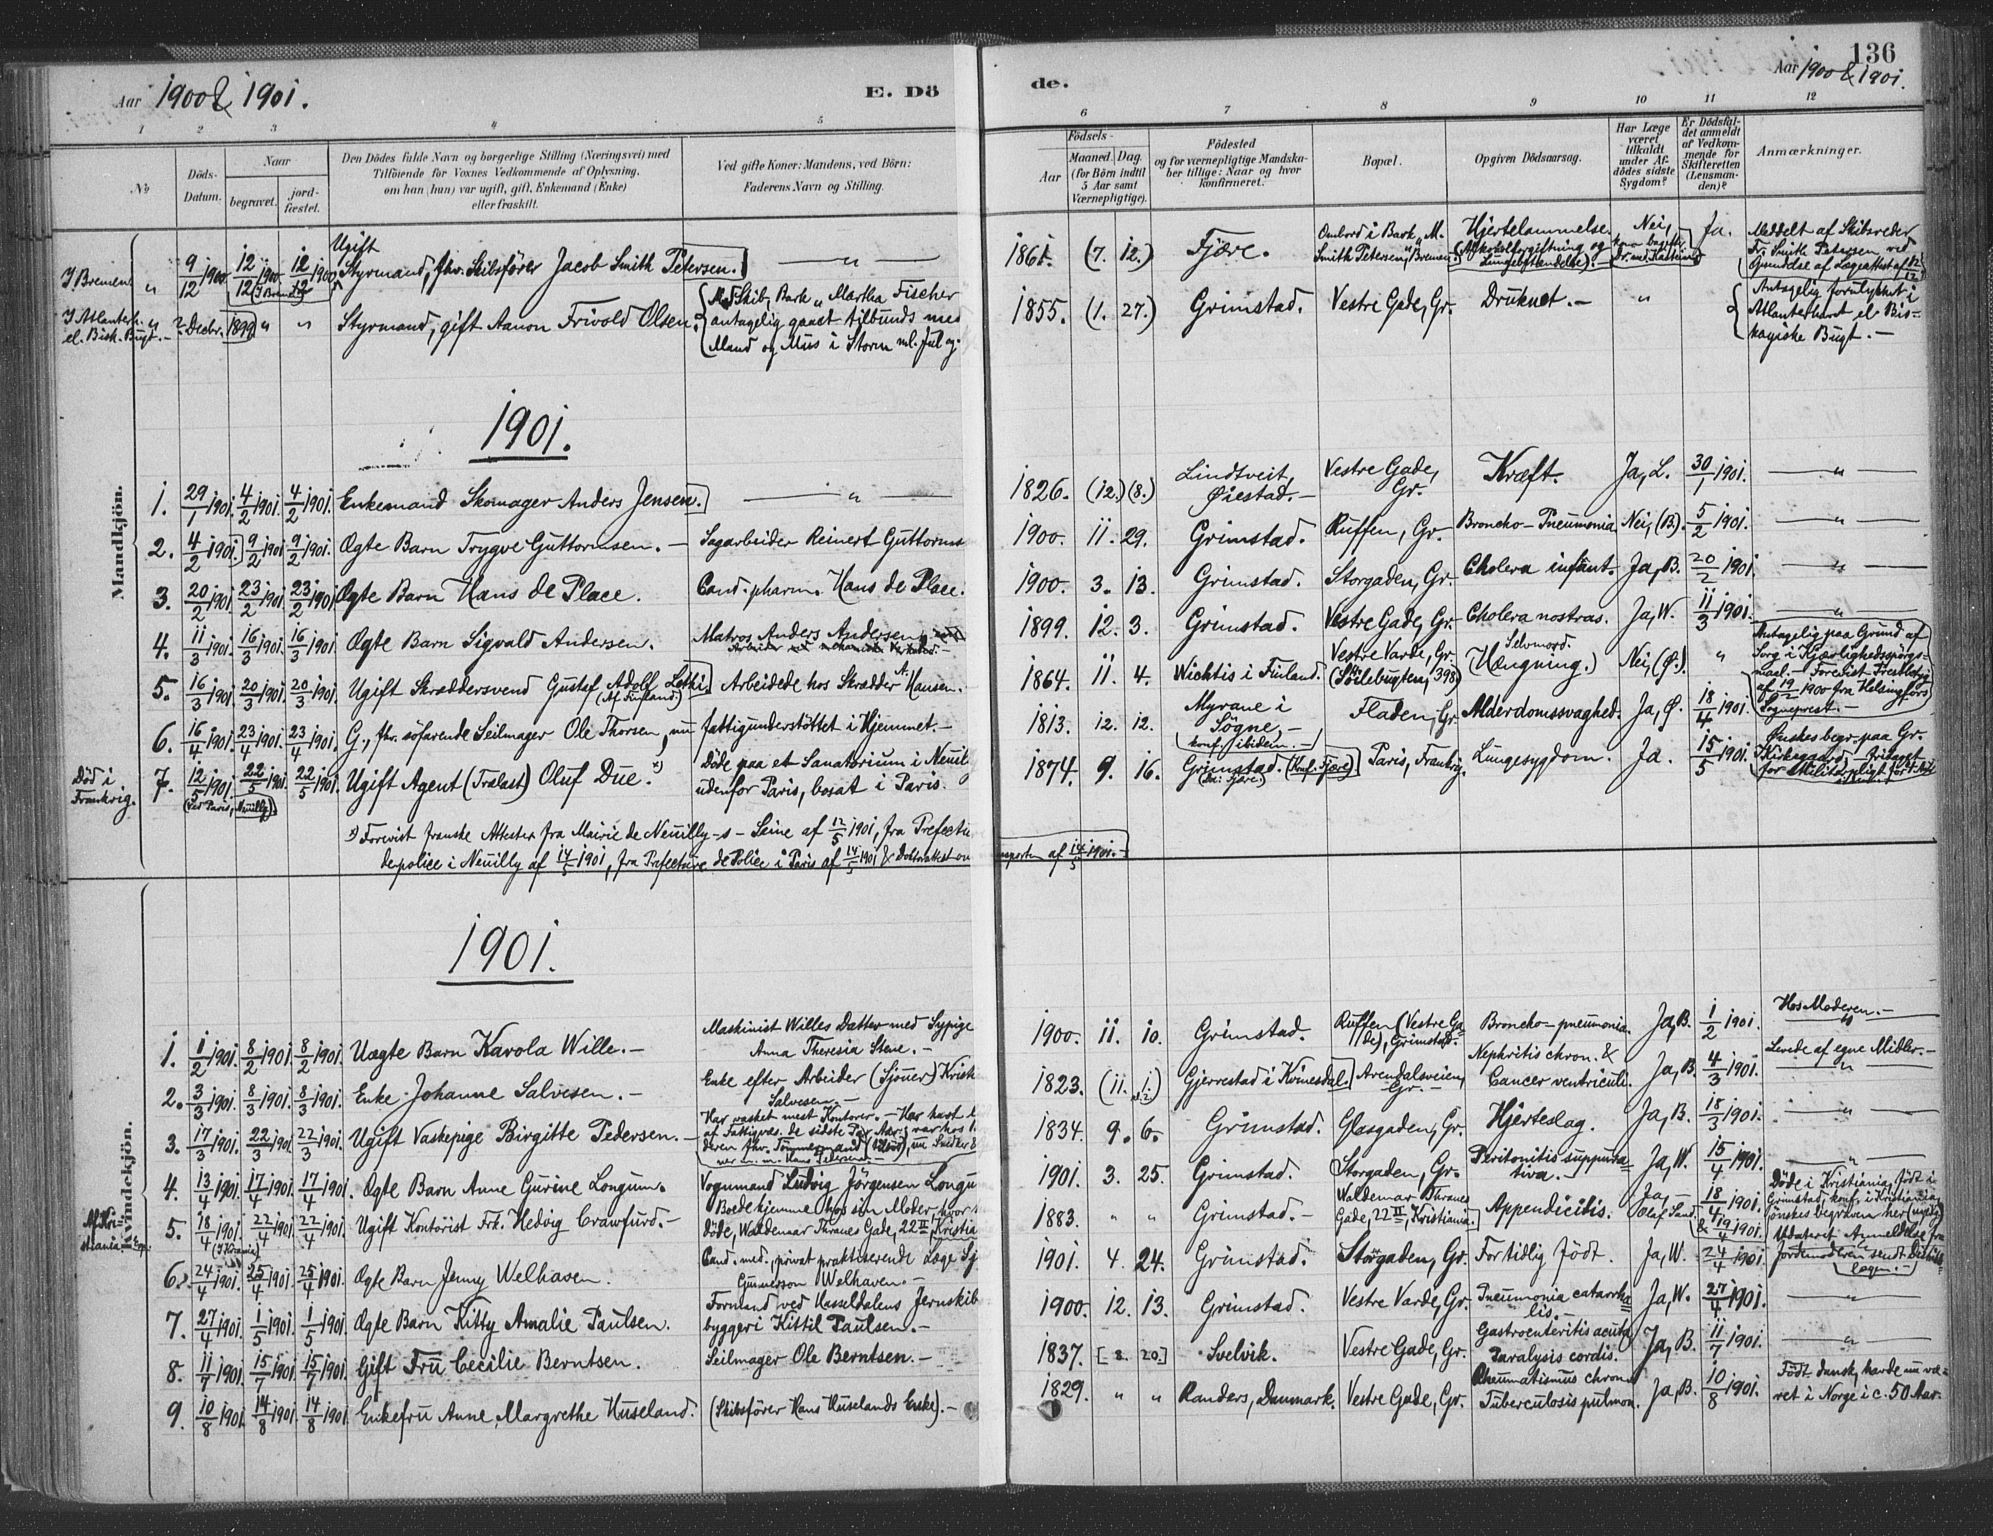 136
Aar 1900 & 1901.
E. Dö
de.
Aar 1900 & 1901.
1 2 3 4 5 6 7 8 9 10 11 12
No
Døds-Datum.
Naar
begravet.
jord-fæstet.
Den Dødes fulde Navn og borgerlige Stilling (Næringsvei) med
Tilföiende for Voxnes Vedkommende af Oplysning,
om han (hun) var ugift, gift, Enkemand (Enke)
eller fraskilt.
Ved gifte Koner: Mandens, ved Börn:
Faderens Navn og Stilling.
Födsels-
Aar
Maaned. Dag.
(for Börn indtil
5 Aar samt
Værnepligtige).
Födested
og for værnepligtige Mandska-
ber tillige: Naar og hvor
konfirmeret.
Bopæl.
Opgiven Dödsaarsag.
Har Læge
været
tilkaldt
under Af-
dödes sidste
Sygdom?
Er Dödsfal-
det anmeldt
af Vedkom-
mende for
Skifteretten
(Lensman-
den)?
Anmærkninger.
Mandkjön.
I Bremen " 9/12 1900 12/12 1900 (I Bremen) 12/12 1900
Ugift
Styrmand, fhv. Skibsförer Jacob Smith Petersen. — " — 1861. (7. 12.) Fjære.
Ombord i Bark "M.
Smith Petersen", Bremen
Hjertelammelse
(Alkoholforgiftning og
Lungebetændelse).
Nei, Ja.
Meddelt af Skibsreder
Fr. Smith Petersen ved
I Atlanterh.
el. Bisk. Bugt. — " ? Decbr. 1899 " " Styrmand, gift Aanon Frivold Olsen.
Med Skib, Bark "Martha Fischer
antagelig gaaet tilbunds med
Mand og Mus i Storm ml. Jul og
1855. (1. 27.) Grimstad. Vestre Gade, Gr. Druknet. — "
Antagelig forulykket i
Atlanterhavet el. Bis-
kayiske Bugt. —
1901.
1. 29/1 1901. 4/2 1901. 4/2 1901. Enkemand Skomager Anders Jensen. — " — 1826. (12.) (8.) Lindtveit, Øiestad. — Vestre Gade, Gr. Kræft. Ja, L. 30/1 1901. — " —
2. 4/2 1901. 9/2 1901. 9/2 1901. Ægte Barn Trygve Guttormsen. — Sagarbeider Reinert Guttorms 1900. 11. 29. Grimstad. Ruffen, Gr. Broncho-Pneumonia Nei, (B). 5/2 1901. — " —
3. 20/2 1901. 23/2 1901. 23/2 1901. Ægte Barn Hans de Place. Cand. pharm. Hans de Place. 1900. 3. 13. Grimstad. Storgaden, Gr. Cholera infant. Ja, B. 20/2 1901. — " —
4. 11/3 1901. 16/3 1901. 16/3 1901. Ægte Barn Sigvald Andersen. Matros Anders Andersen 1899. 12. 3. Grimstad. Vestre Gade, Gr. Cholera nostras. Ja, W. 11/3 1901. — " —
5. 16/3 1901. 20/3 1901. 20/3 1901. Ugift Skræddersvend Gustaf Adolf (Af Finland) Arbeidede hos Skrædder A. Hansen. 1864. 11. 4. Wichtis i Finland. Vestre Varde, Gr. Selvmord. (Hængning.) Nei, (Ø). "
Antagelig paa Grund af
Sorg i Kjærlighedsspörgs-
maal.
af 19/2 1900 fra Helsingfors
Sogneprest. —
6. 16/4 1901. 23/4 1901. 23/4 1901. G., fhv. söfarende Seilmager Ole Thorsen, nu fattigunderstöttet i Hjemmet. — 1813. 12. 12. Myrane i Sögne, — (konf. ibidem. —) Fladen, Gr. Alderdomssvaghed. Ja, Ø. 18/4 1901.
Död i
Frankrig.
7. 12/5 1901. (Ved Paris, Neuilly). 22/5 1901. 22/5 1901. Ugift Agent (Trælast) Oluf Due. x)
Döde paa et Sanatorium i Neuil
udenfor Paris, bosat i Paris.
1874. 9. 16. Grimstad. (Konf. Fjære) Paris, Frankrig. Lungesygdom. Ja. 15/5 1901.
Ønskes begr. paa Gr.
Kirkegaard.
x) Forevist franske Attester fra Mairie de Neuilly-s-Seine af 12/5 1901, fra Prefectu
de police i Neuilly af 14/5 1901, fra Prefecture de Police i Paris af 14/5 1901 & Doktorattest om
af 14/5 1901. —
Kvindekjön.
1901.
1. 1/2 1901. 8/2 1901. 8/2 1901. Uægte Barn Karola Wille. —
Maskinist Willes Datter med Sypige
Anna Theresia Stene. —
1900. 11. 10. Grimstad. Ruffen (Vestre Gade), Grimstad. Broncho-pneumonia. Ja, B. 1/2 1901. Hos Moderen. —
2. 3/3 1901. 8/3 1901. 8/3 1901. Enke Johanne Salvesen. —
Enke efter Arbeider (Sjouer) Krist
Salvesen. —
1823. (11. Gjerrestad i Kvinesdal. Arendalsveien, Gr. — Nephritis chron. & Cancer ventriculi. Ja, B. 4/3 1901. Levede af egne Midler. —
3. 17/3 1901. 22/3 1901. 22/3 1901. Ugift Vaskepige Birgitte Pedersen. —
Har vasket mest Kontorer. — Har havt
af Fattigvæs. de sidste
1834. 9. 6. Grimstad. Glasgaden, Gr. Hjerteslag. Ja, B. 18/3 1901. — " —
4. 13/4 1901. 17/4 1901. 17/4 1901. Ægte Barn Anne Gurine Longum. Vognmand Ludvig Jörgensen Longu 1901. 3. 25. Grimstad. Storgaden, Gr. Peritonitis suppura-tiva. Ja, W. 15/4 1901. — " —
5. 18/4 1901. 22/4 1901. 22/4 1901. Ugift Kontorist Frk. Hedvig Crawfurd. —
Boede hjemme hos sin Moder hvor
döde, Waldemar Thranes Gade, 22 II Kristia
1883. " " Grimstad. — Waldemar Thranes Gade, 22 II, Kristiania. Appendicitis. Ja, — Olaf Sand. 18/4 1901. & 19/4 1901.
Döde i Kristiania, födt i
Grimstad, konf. i Kristiania,
ønskes begraven her
6. 24/4 1901. 25/4 1901. 25/4 1901. Ægte Barn Jenny Welhaven.
Cand. med., privat praktiserende Læge
Gunnerson Welhaven. —
1901. 4. 24. Grimstad. Storgaden, Gr. For tidlig födt. Ja, W. 24/4 1901.
Udateret Anmeldelse fra
Jordemoderen sendt Distrikts-
lægen. —
7. 27/4 1901. 1/5 1901. 1/5 1901. Ægte Barn Kitty Amalie Paulsen.
Formand ved Hasseldalens Jernskib
byggeri Kittil Paulsen. —
1900. 12. 13. Grimstad. Vestre Varde, Gr. Pneumonia catarrha-lis. — Ja, W. 27/4 1901. — " —
8. 11/7 1901. 15/7 1901. 15/7 1901. Gift Fru Cecilie Berntsen. Seilmager Ole Berntsen. — 1837. [8. 20.] Svelvik. Vestre Gade, Gr. Gastroenteritis acuta Paralysis cordis. Ja, B. 11/7 1901. — " —
9. 10/8 1901. 14/8 1901. 14/8 1901. Enkefru Anne Margrethe Huseland. (Skibsförer Hans Huselands Enke). — 1829. " " Randers, Danmark. Vestre Gade, Gr. Rheumatismus chron. Tuberculosis pulmon. Ja, B. 10/8 1901.
Födt dansk, havde nu væ-
ret i Norge i c. 50 Aar.